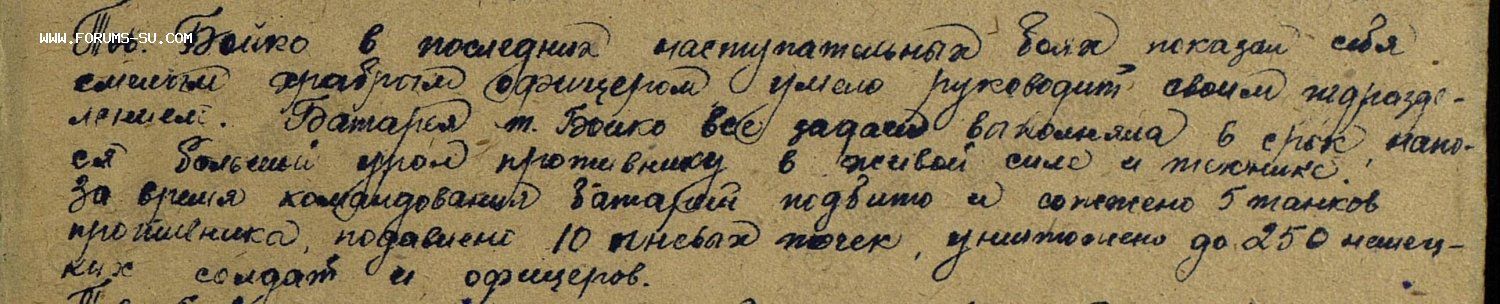 WWW.FORUMS-SU.COM
Тов. Бойко в последних наступательных боях показал себя
смелым храбрым офицером, умело руководит своим подразде-
лением. Батарея т. Бойко все задачи выполняла в срок, нано-
ся большой урон противнику в живой силе и технике.
За время командования батареей подбито и сожжено 5 танков
противника, подавлено 10 огневых точек, уничтожено до 250 немец-
ких солдат и офицеров.